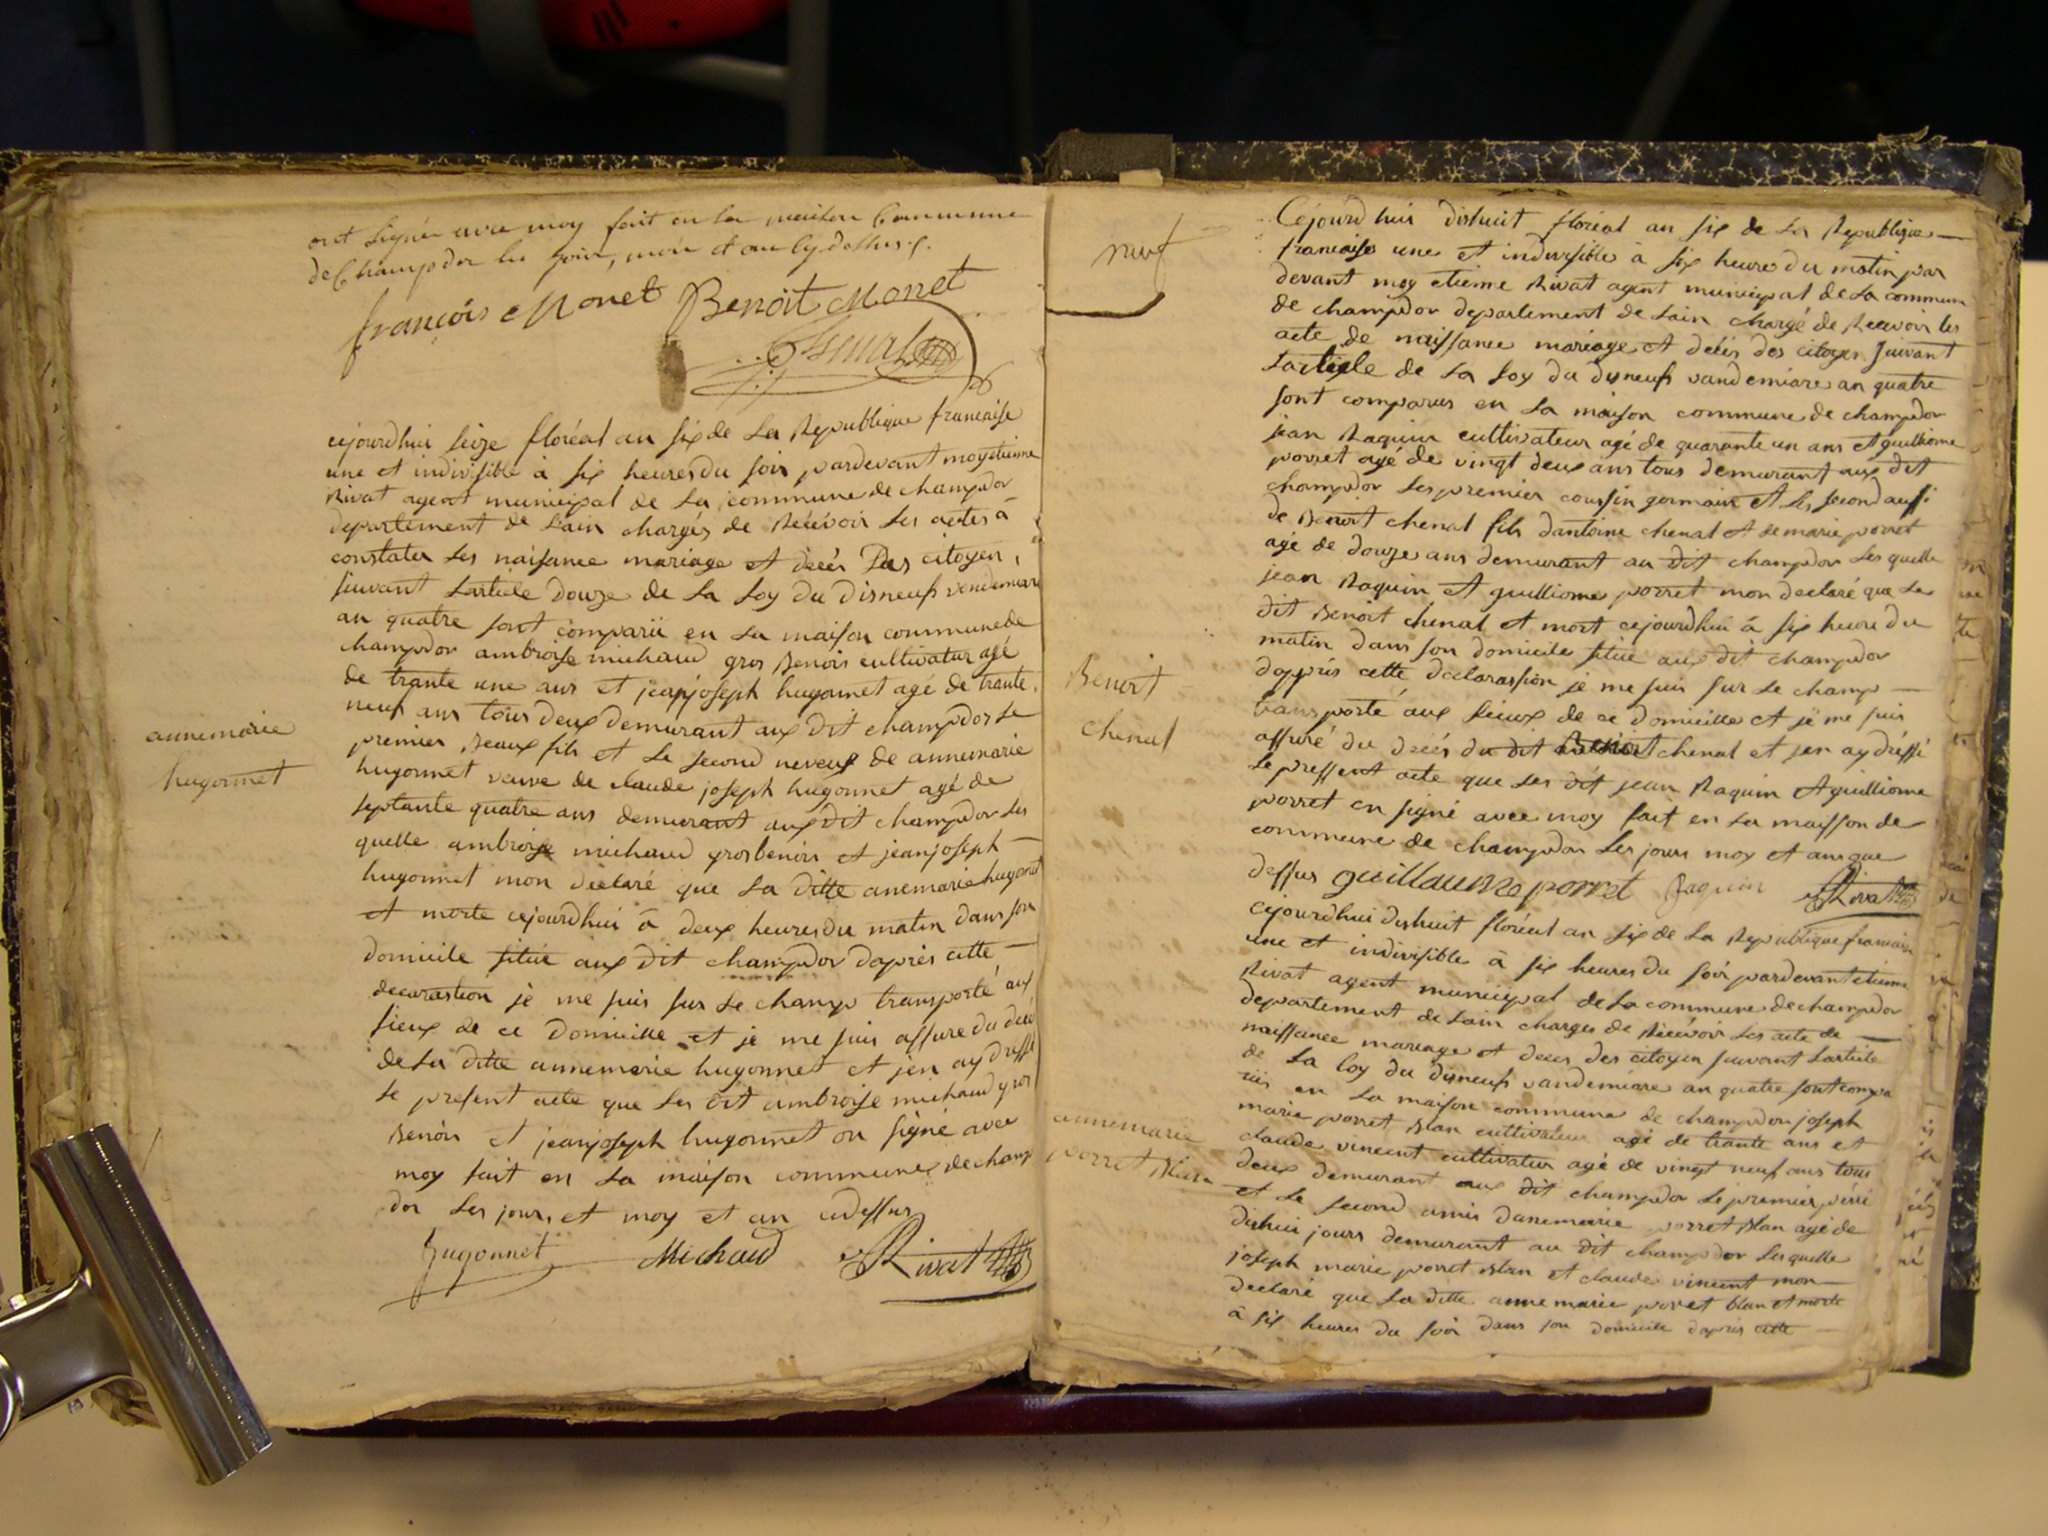 ont signée avec moy fait en la maison Commune
de Champdor les jour, moi et an cy dessus
françois Monet Benoit Monet
annemarie
hugonnet
cejourdhui seize floréal an six de La Republique francaise
une et indivisible à six heures du soir pardevant moy etienne
Rivat agent municipal de La commune de champdor
departement de Lain chargés de Recevoir Les actes à
constater Les naisance mariage et décés Des citoyen,
suivant Larticle douze de La Loy du disneufs vendemiare
an quatre sont comparü en La maison commune de
champdor ambroise michaud gros Benois cultivatur agé
de trante une ans et jeanjoseph hugonnet agé de trante
neuf ans tous deux demurant aux dit champdor Le
premier Beaux fils et Le second neveux de annemarie
hugonnet veuve de claude joseph hugonnet agé de
septante quatre ans demurant aux dit champdor Les
quelle ambroise michaud grosbenois et jeanjoseph
hugonnet mon déclaré que La ditte anemarie hugonet
et morte cejourdhui à deux heures du matin dans son
domicile situé aux dit champdor daprès cette
decarastion je me suis sur Le champ transporté aux
Lieux de ce domicille et je me suis assure du décé
de La ditte annemarie hugonnet et jen ay dressé
Le present acte que Les dit ambroise michaud gros
Benois et jeanjoseph hugonnet on signé avec
moy fait en La maison communes de champ
dor Les jours et moy et an cidessus
hugonnet Michaud Rivat
neuf
Cejourdhui dishuit floréal an six de La Republique
francaise une et indivisible à six heure du matin par
devant moy etienne Rivat agent municipal de La commune
de champdor departement de Lain chargé de Recevoir les
acte de naissance mariage et décés des citoyen suivant
Larticle de La Loy du disneufs vandemiare an quatre
sont comparus en La maison commune de champdor
jean Raquin cultivateur agé de quarante un ans et guilliome
porret agé de vingt deux ans tous demurant aux dit
champdor Les premier coussin germain et Les second aussi
de Benoit chenal fils dantoine chenal et de marie porret
agé de douze ans demurant au dit champdor Les quelle
jean Raquin et guilliome porret mon declaré que Le
dit Benoit chenal et mort cejourdhui à six heure du
matin dans son domicile situé aux dit champdor
dapprés cette declarassion je me suis sur Le champ
transporté aux Lieux de ce domicille et je me suis
assuré du décés du dit Benoit chenal et jen ay dréssé
Le pressent acte que Les dit jean Raquin et guilliome
porret on signé avec moy fait en La maisson de
commune de champdor Les jours moy et an que
dessus guillaume porret Raquin Rivat
Benoit
chenal
cejourdhui dishuit floréal an six de La Republique francaise
une et indivisible à six heures du soir pardevant etienne
Rivat agent municipal de La commune de champdor
departement de Lain charges de Recevoir Les acte de
naissance mariage et deces des citoyen suivant Larticle
de La Loy du disneufs vandemiare an quatre sont compa
rüs en La maison commune de champdor joseph
marie porret Blan cultivateur agé de trante ans et
claude vincent cultivatur agé de vingt neuf ans tous
deux demurant aux dit champdor Le premier péré
et Le second amis danemarie porret Blan agé de
dishui jours demurant au dit champdor Les quelle
joseph marie porret Blan et claude vincent mon
declaré que La ditte anne marie porret blan et morte
à six heures du soir dans son domicile daprès cette
annemarie
porret Blan